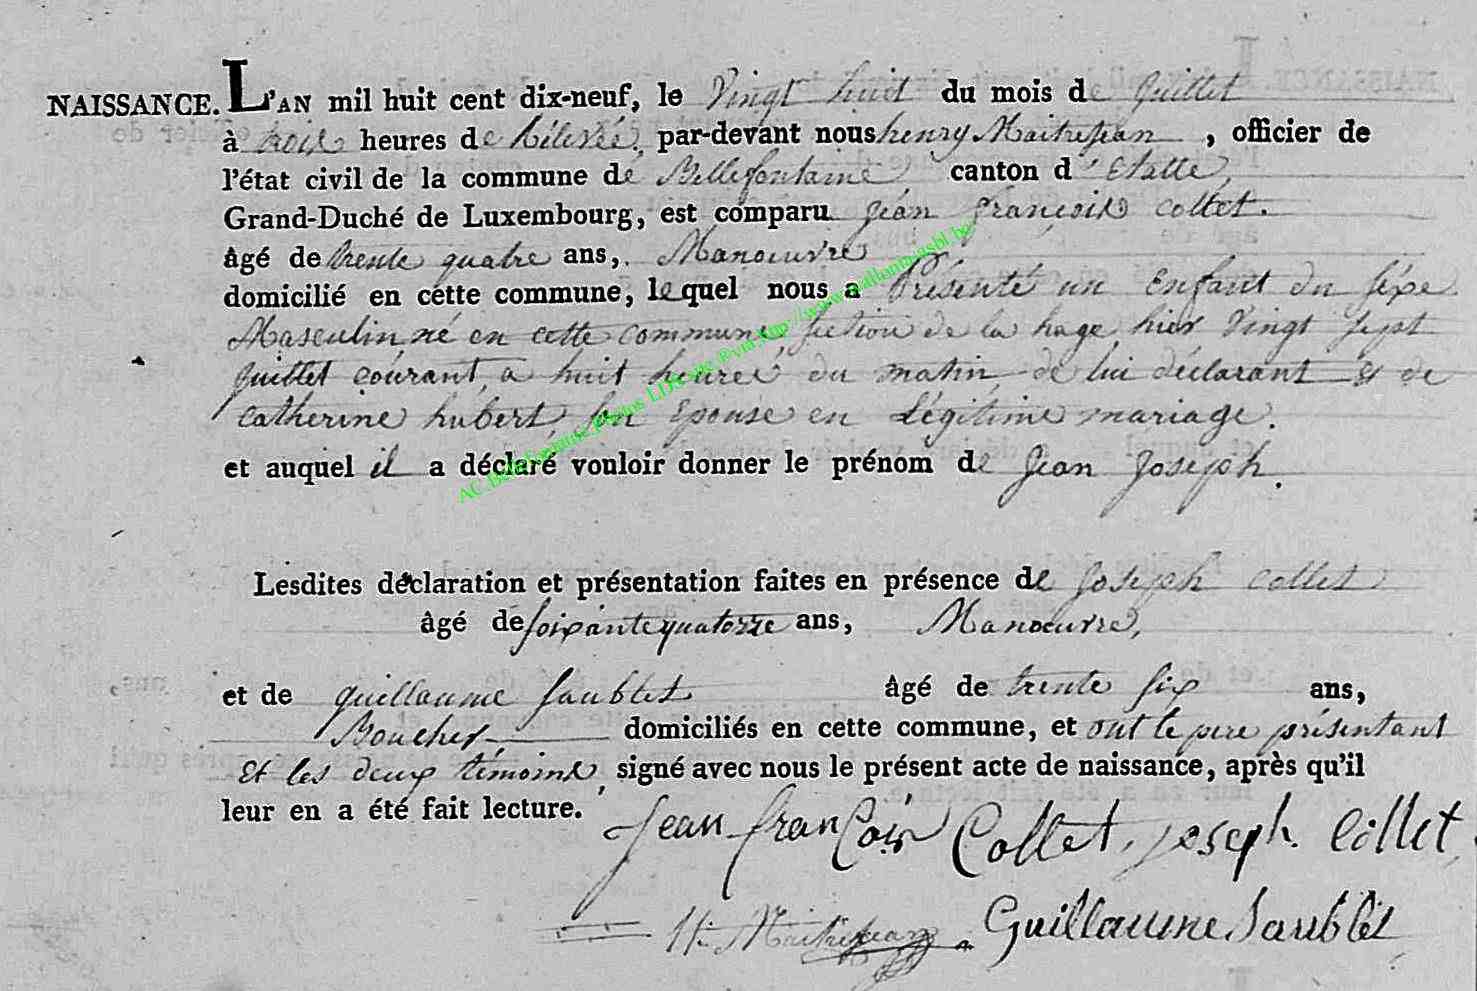 NAISSANCE. L'AN mil huit cent dix-neuf, le Vingt huit du mois de juillet
à trois heures de Rélevée, par-devant nous henry Maitrejean, officier de
l'état civil de la commune de Bellefontaine canton d'Etalle,
Grand-Duché de Luxembourg, est comparu jean françois collet.
âgé de trente quatre ans, Manoeuvre
domicilié en cette commune, lequel nous a Présenté un Enfant du sexe
Masculin né en cette commune section de la hage, hier Vingt sept
juillet courant, a huit heures du matin, de lui déclarant et de
catherine hubert, son Epouse en Légitime mariage.
et auquel il a déclaré vouloir donner le prénom de jean joseph.
Lesdites déclaration et présentation faites en présence de joseph collet
âgé de soixante quatorze ans, Manoeuvre,
et de guillaume saublet âgé de trente six ans,
Boucher domiciliés en cette commune, et ont le pere présentant
Et les deux témoins, signé avec nous le présent acte de naissance, après qu'il
leur en a été fait lecture.
jean françois Collet, joseph Collet,
H. Maitrejean Guillaume Saublet